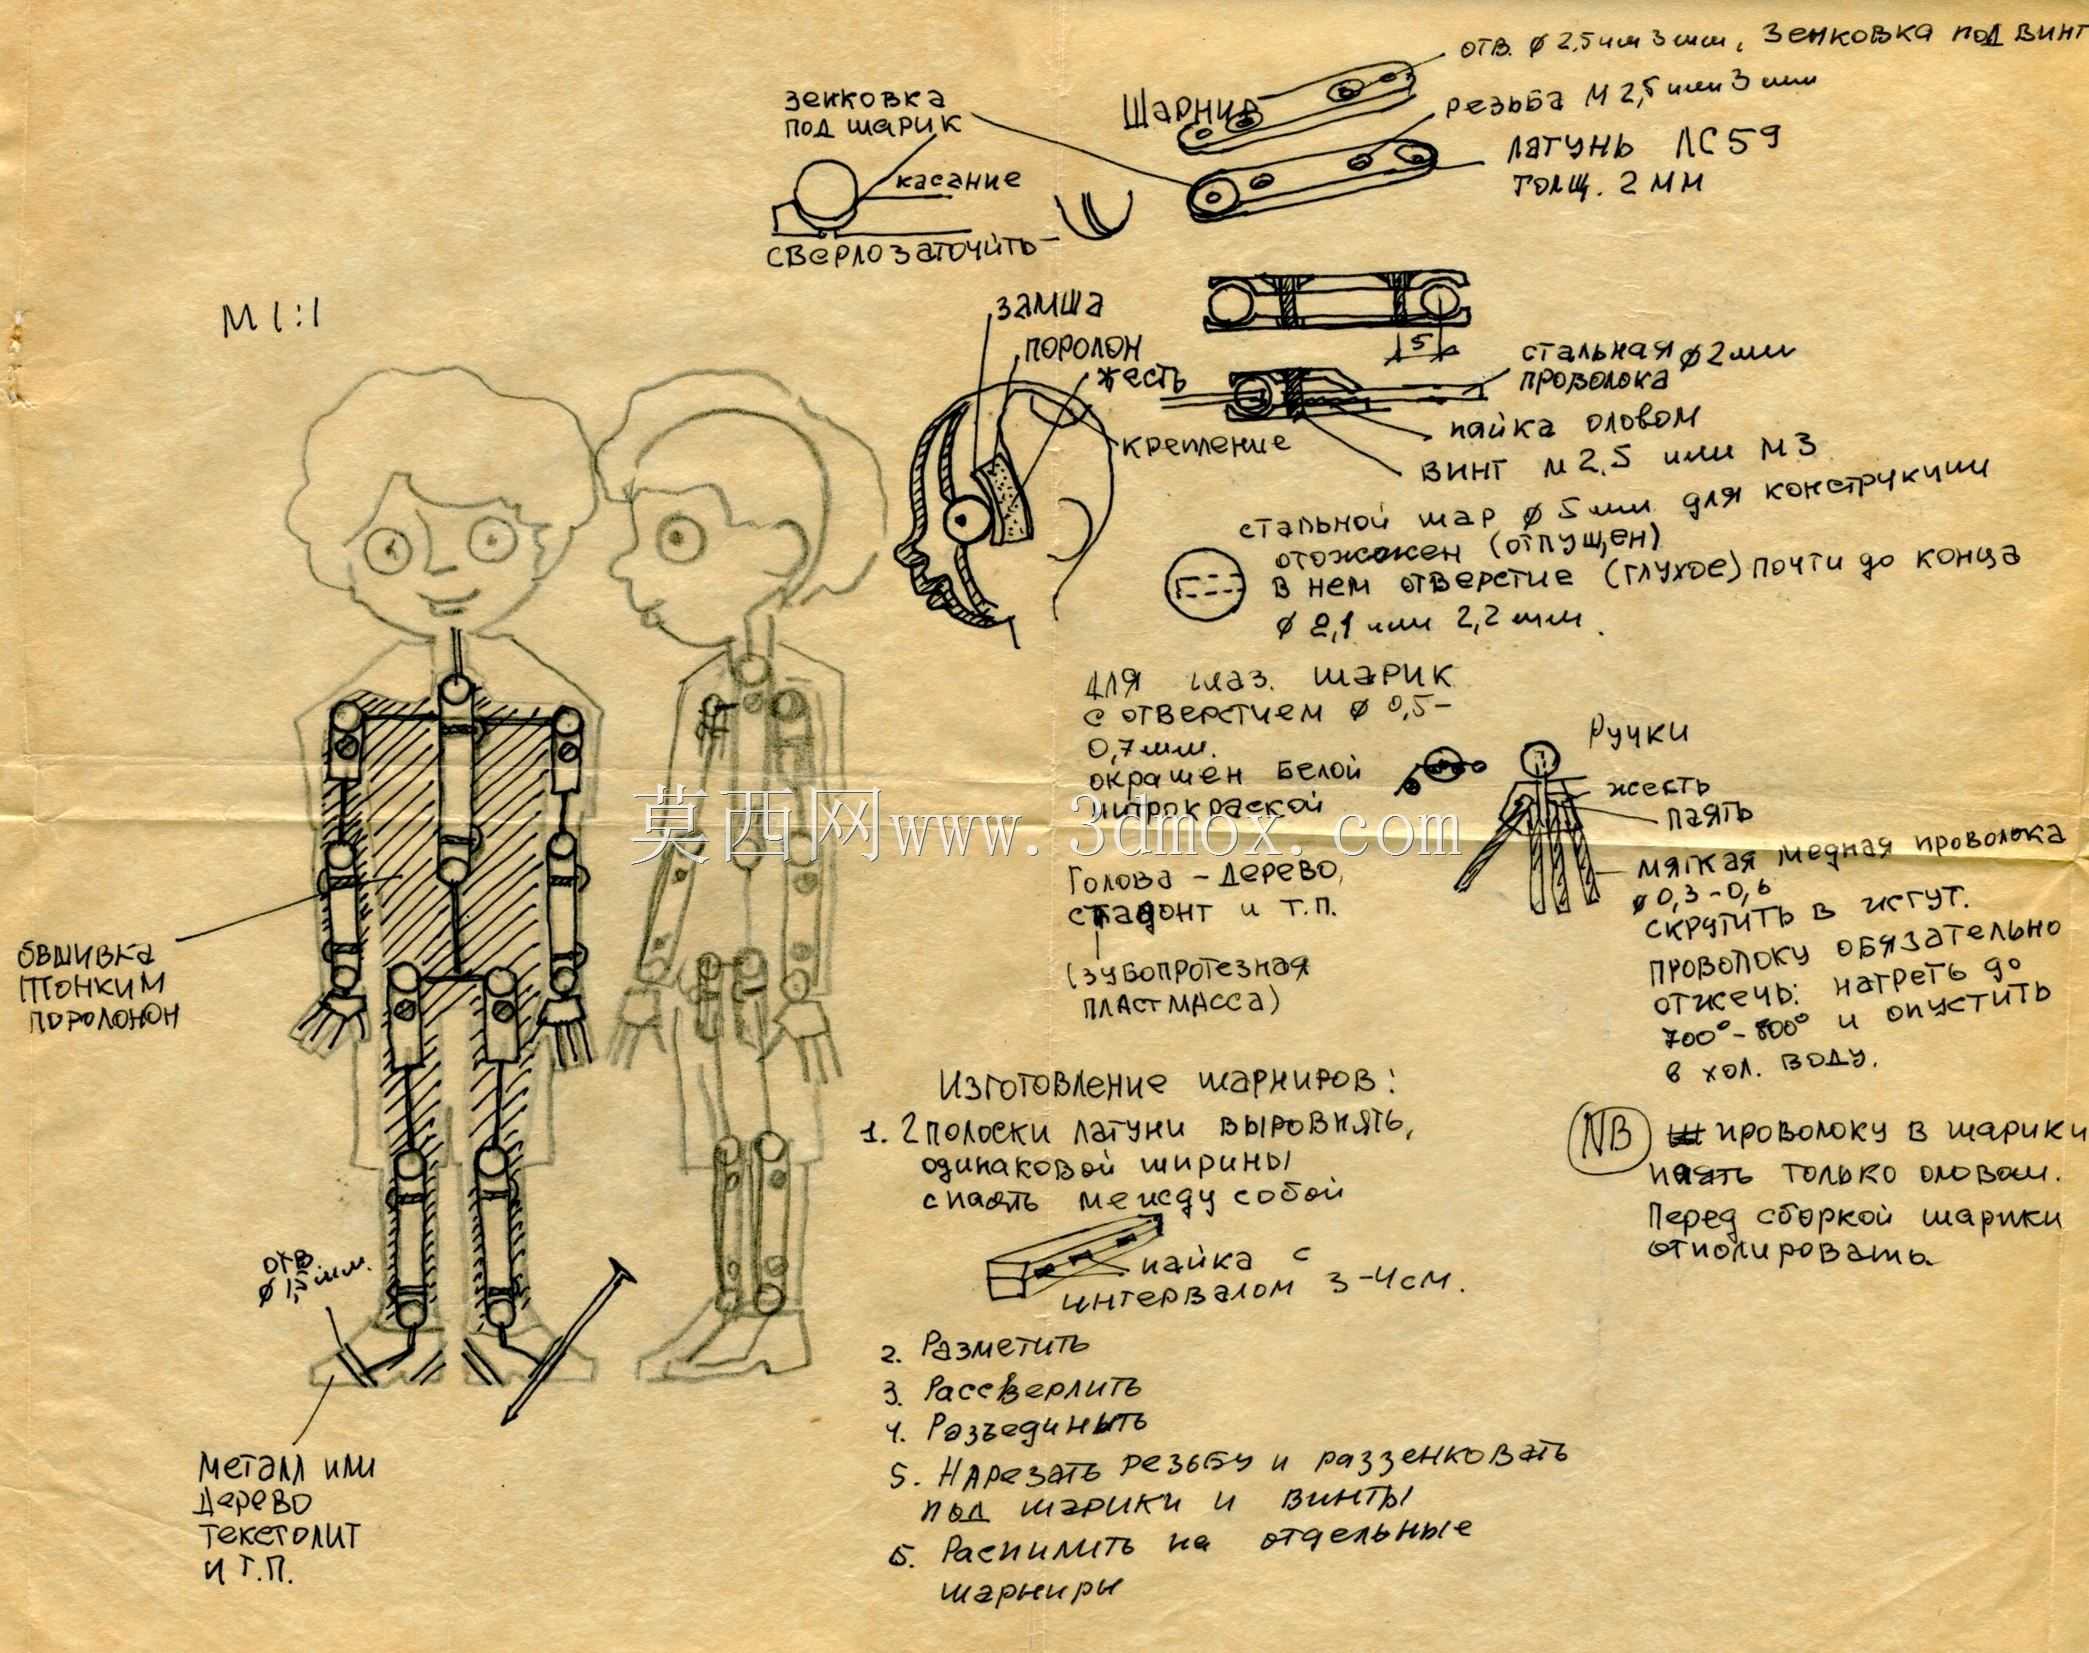 отв. ∅ 2,5 или 3 мм, зенковка под винт
зенковка
под шарик
Шарнир
резьба М 2,5 или 3 мм
латунь ЛС 59
толщ. 2 мм
касание
сверло заточить
М 1:1
замша
поролон
жесть
крепление
5
стальная ∅ 2 мм
проволока
пайка оловом
винт М 2,5 или М 3
стальной шар ∅ 5 мм для конструкции
отожжен (отпущен)
в нем отверстие (глухое) почти до конца
∅ 2,1 или 2,2 мм.
для глаз. шарик
с отверстием ∅ 0,5-
0,7 мм.
окрашен белой
нитрокраской
莫西网www.3dmox.com
Ручки
жесть
паять
мягкая медная проволока
∅ 0,3-0,6
скрутить в жгут.
проволоку обязательно
отжечь: нагреть до
700°-800° и опустить
в хол. воду.
Голова - дерево,
и т.п.
(зубопротезная
пластмасса)
обшивка
тонким
поролоном
Изготовление шарниров:
1. 2 полоски латуни выровнять,
одинаковой ширины
спаять между собой
пайка с
интервалом 3-4 см.
NB проволоку в шарики
паять только оловом.
Перед сборкой шарики
отполировать.
отв
∅ 1,5 мм.
2. Разметить
3. Рассверлить
4. Разъединить
5. Нарезать резьбу и раззенковать
под шарики и винты
Б. Распилить на отдельные
шарниры
металл или
дерево
текстолит
и т.п.